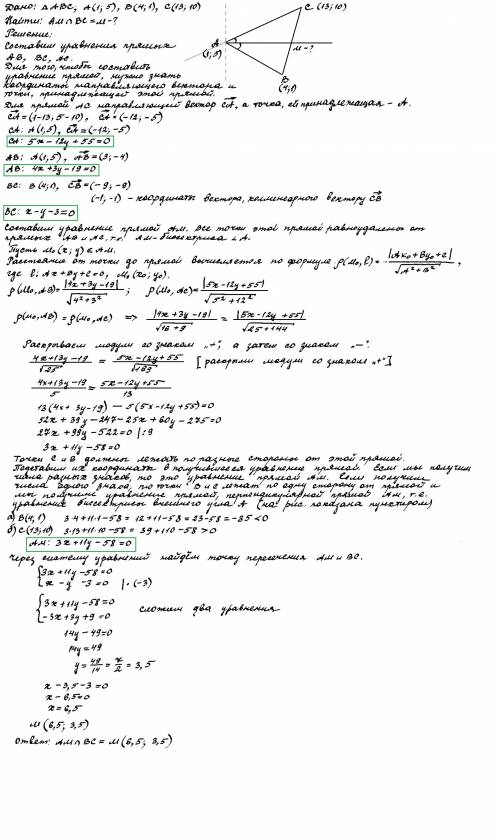 Дано: △ABC, A(1; 5), B(4; 1), C(13; 10)
Найти: AM∩BC = M - ?
Решение:
Составим уравнения прямых
AB, BC, AC.
Для того, чтобы составить
уравнение прямой, нужно знать
координаты направляющего вектора и
точки, принадлежащей этой прямой.
C (13; 10)
A
(1; 5)
M - ?
B
(4; 1)
Для прямой AC направляющий вектор CA, а точка, ей принадлежащая - A.
CA = (1-13; 5-10), CA = (-12; -5)
CA: A(1; 5), CA = (-12; -5)
CA: 5x - 12y + 55 = 0
AB: A(1; 5), AB = (3; -4)
AB: 4x + 3y - 19 = 0
BC: B(4; 1), CB = (-9; -9)
(-1; -1) - координаты вектора, коллинеарного вектору CB
BC: x - y - 3 = 0
Составим уравнение прямой AM. Все точки этой прямой равноудалены от
прямых AB и AC, т.к. AM - биссектриса ∠A.
Пусть M₀(x; y) ∈ AM.
Расстояние от точки до прямой вычисляется по формуле ρ(M₀, l) = |Ax₀ + By₀ + C| / √(A² + B²),
где l: Ax + By + C = 0, M₀(x₀; y₀).
ρ(M₀, AB) = |4x + 3y - 19| / √(4² + 3²); ρ(M₀, AC) = |5x - 12y + 55| / √(5² + 12²)
ρ(M₀, AB) = ρ(M₀, AC) ⇒ |4x + 3y - 19| / √(16 + 9) = |5x - 12y + 55| / √(25 + 144)
Раскрываем модули со знаком „+“, а затем со знаком „-“.
(4x + 13y - 19) / √25 = (5x - 12y + 55) / √169 [раскрыли модули со знаком "+"]
(4x + 13y - 19) / 5 = (5x - 12y + 55) / 13
13(4x + 3y - 19) - 5(5x - 12y + 55) = 0
52x + 39y - 247 - 25x + 60y - 275 = 0
27x + 99y - 522 = 0 | : 9
3x + 11y - 58 = 0
Точки C и B должны лежать по разные стороны от этой прямой.
Подставим их координаты в получившееся уравнение прямой. Если мы получим
числа разных знаков, то это уравнение прямой AM. Если получим
числа одного знака, то точки B и C лежат по одну сторону от прямой и
мы получили уравнение прямой, перпендикулярной прямой AM, т.е.
уравнение биссектрисы внешнего угла A (на рис. показана пунктиром)
а) B(4; 1) 3·4 + 11·1 - 58 = 12 + 11 - 58 = 23 - 58 = -35 < 0
б) C(13; 10) 3·13 + 11·10 - 58 = 39 + 110 - 58 > 0
AM: 3x + 11y - 58 = 0
Через систему уравнений найдём точку пересечения AM и BC.
{ 3x + 11y - 58 = 0
x - y - 3 = 0 | · (-3)
{ 3x + 11y - 58 = 0
-3x + 3y + 9 = 0 сложим два уравнения
14y - 49 = 0
14y = 49
y = 49/14 = 7/2 = 3,5
x - 3,5 - 3 = 0
x - 6,5 = 0
x = 6,5
M (6,5; 3,5)
Ответ: AM∩BC = M(6,5; 3,5)